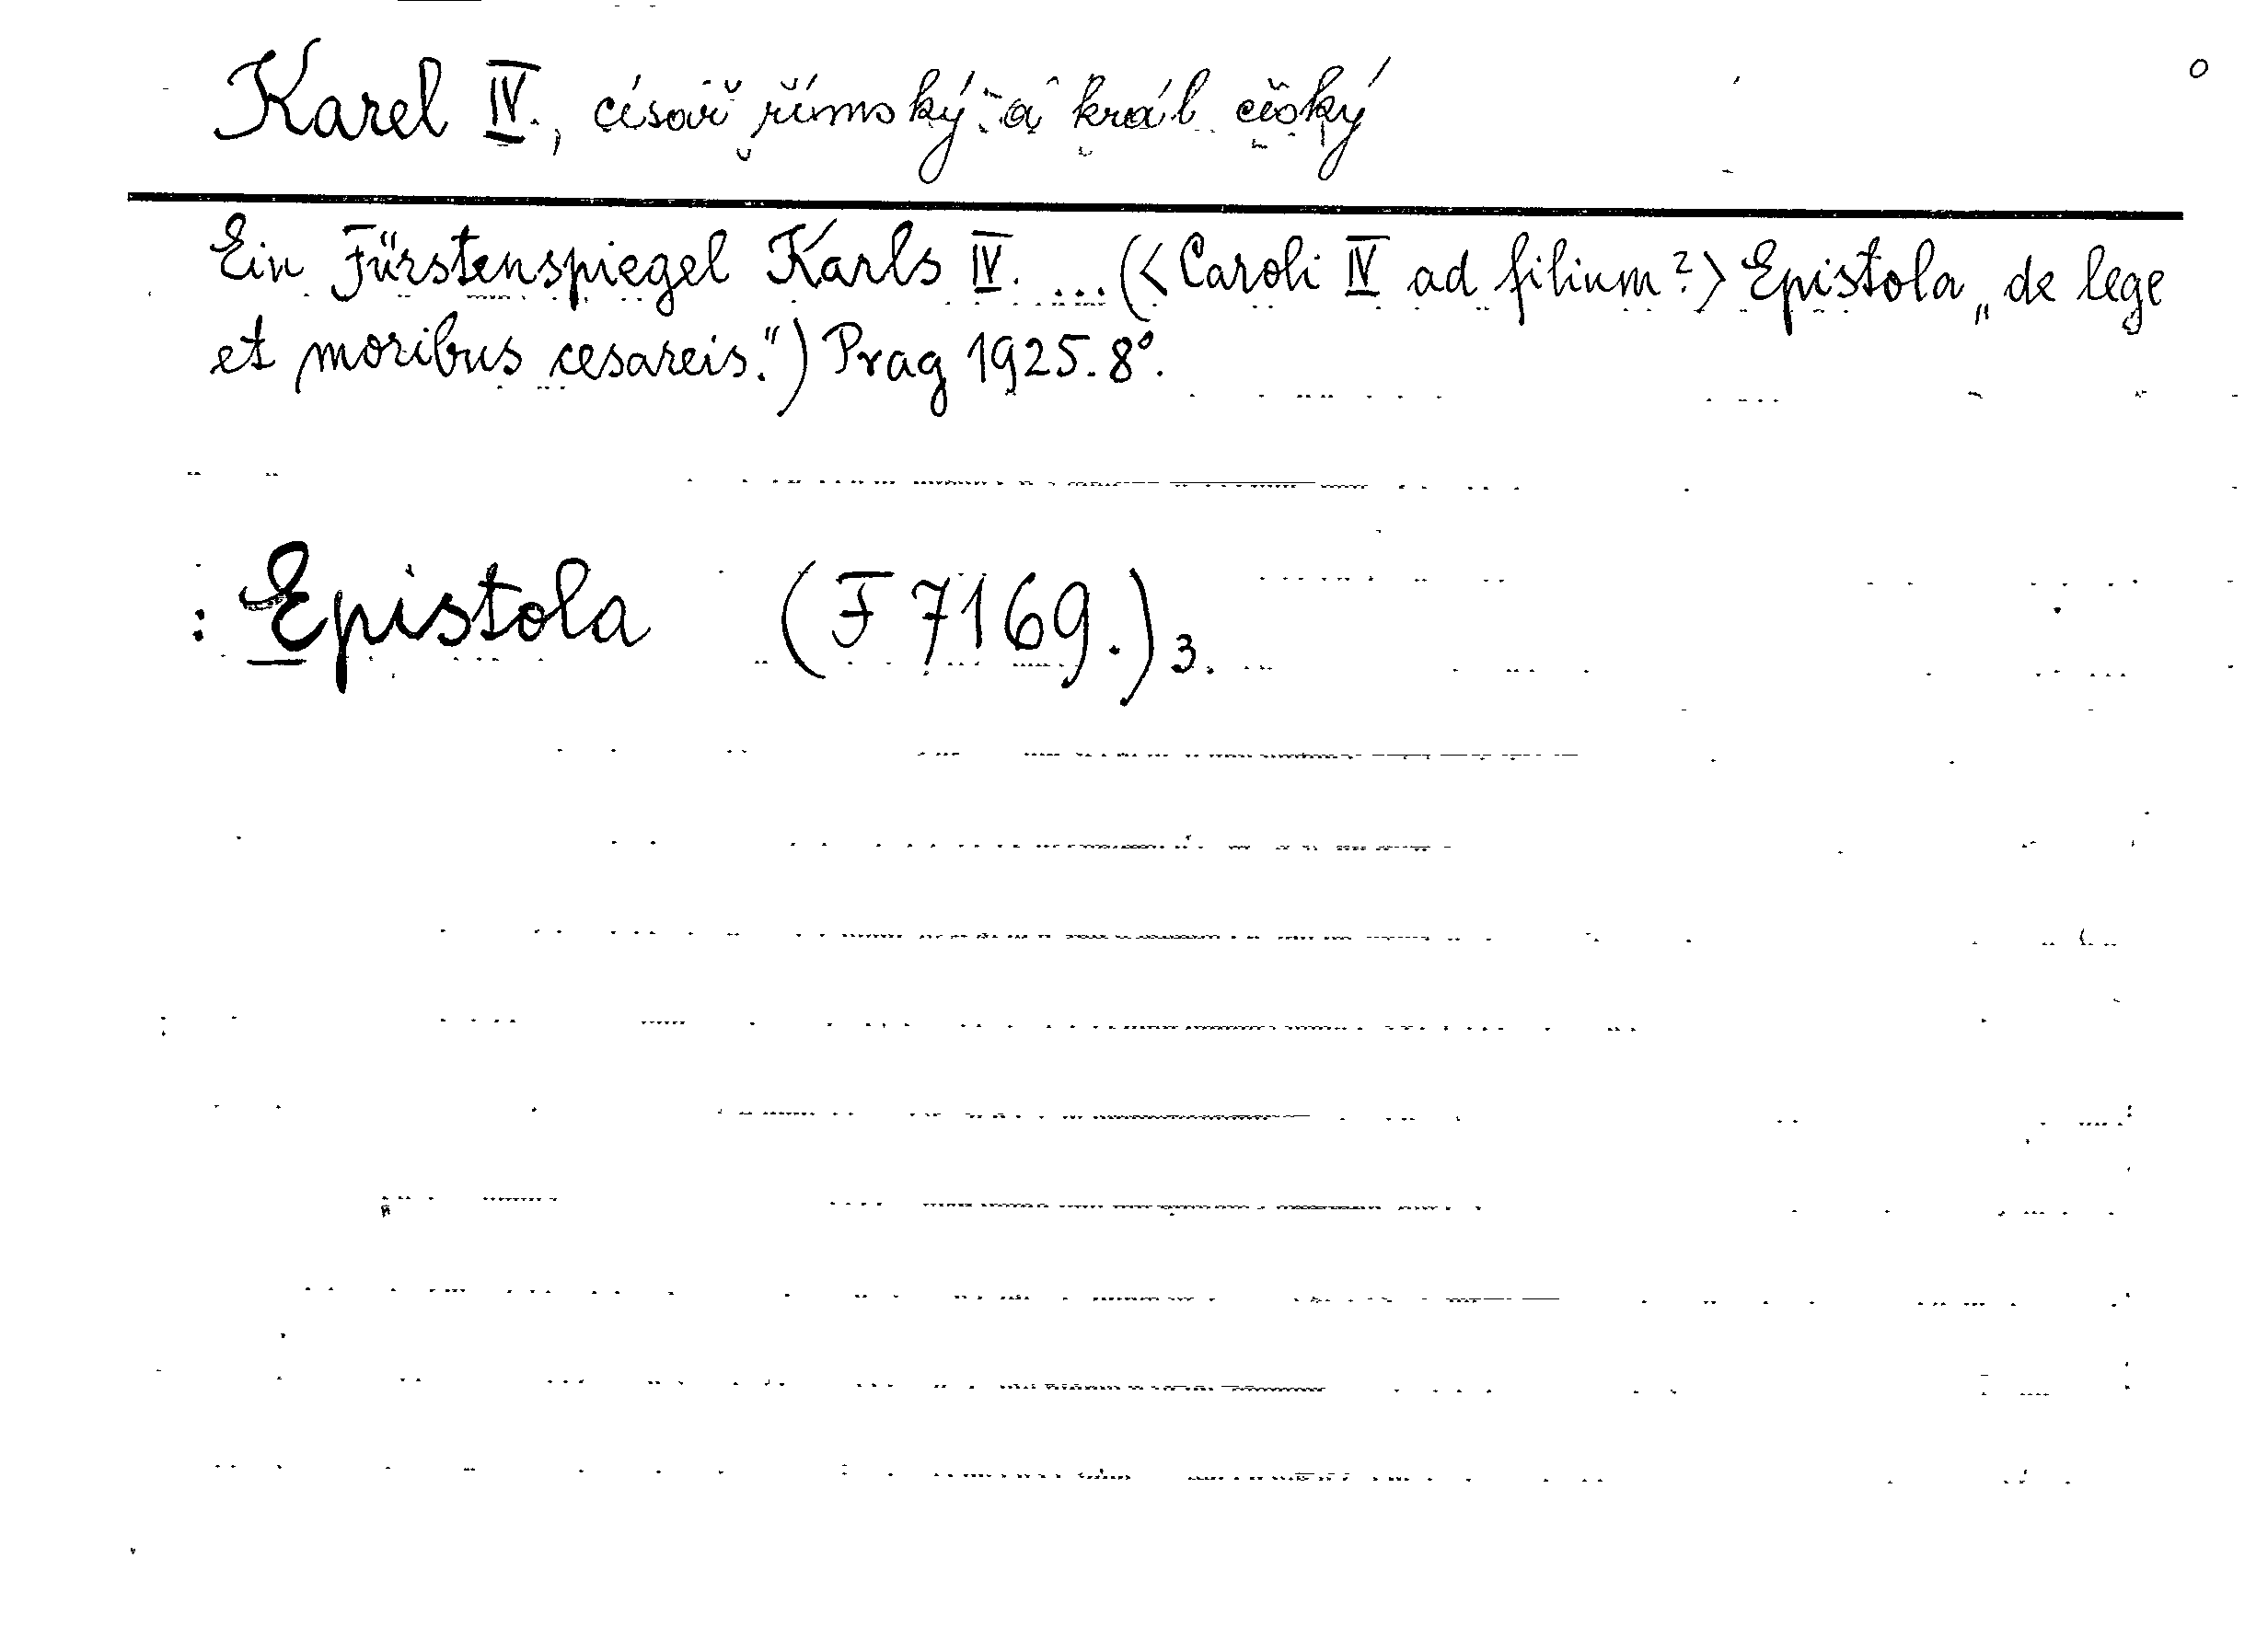 Karel IV., císař římský a král český
Ein Fürstenspiegel Karls IV. ... (<Caroli IV ad filium?> Epistola „de lege
et moribus cesareis.") Prag 1925. 8°.
: Epistola (F 7169.) 3.